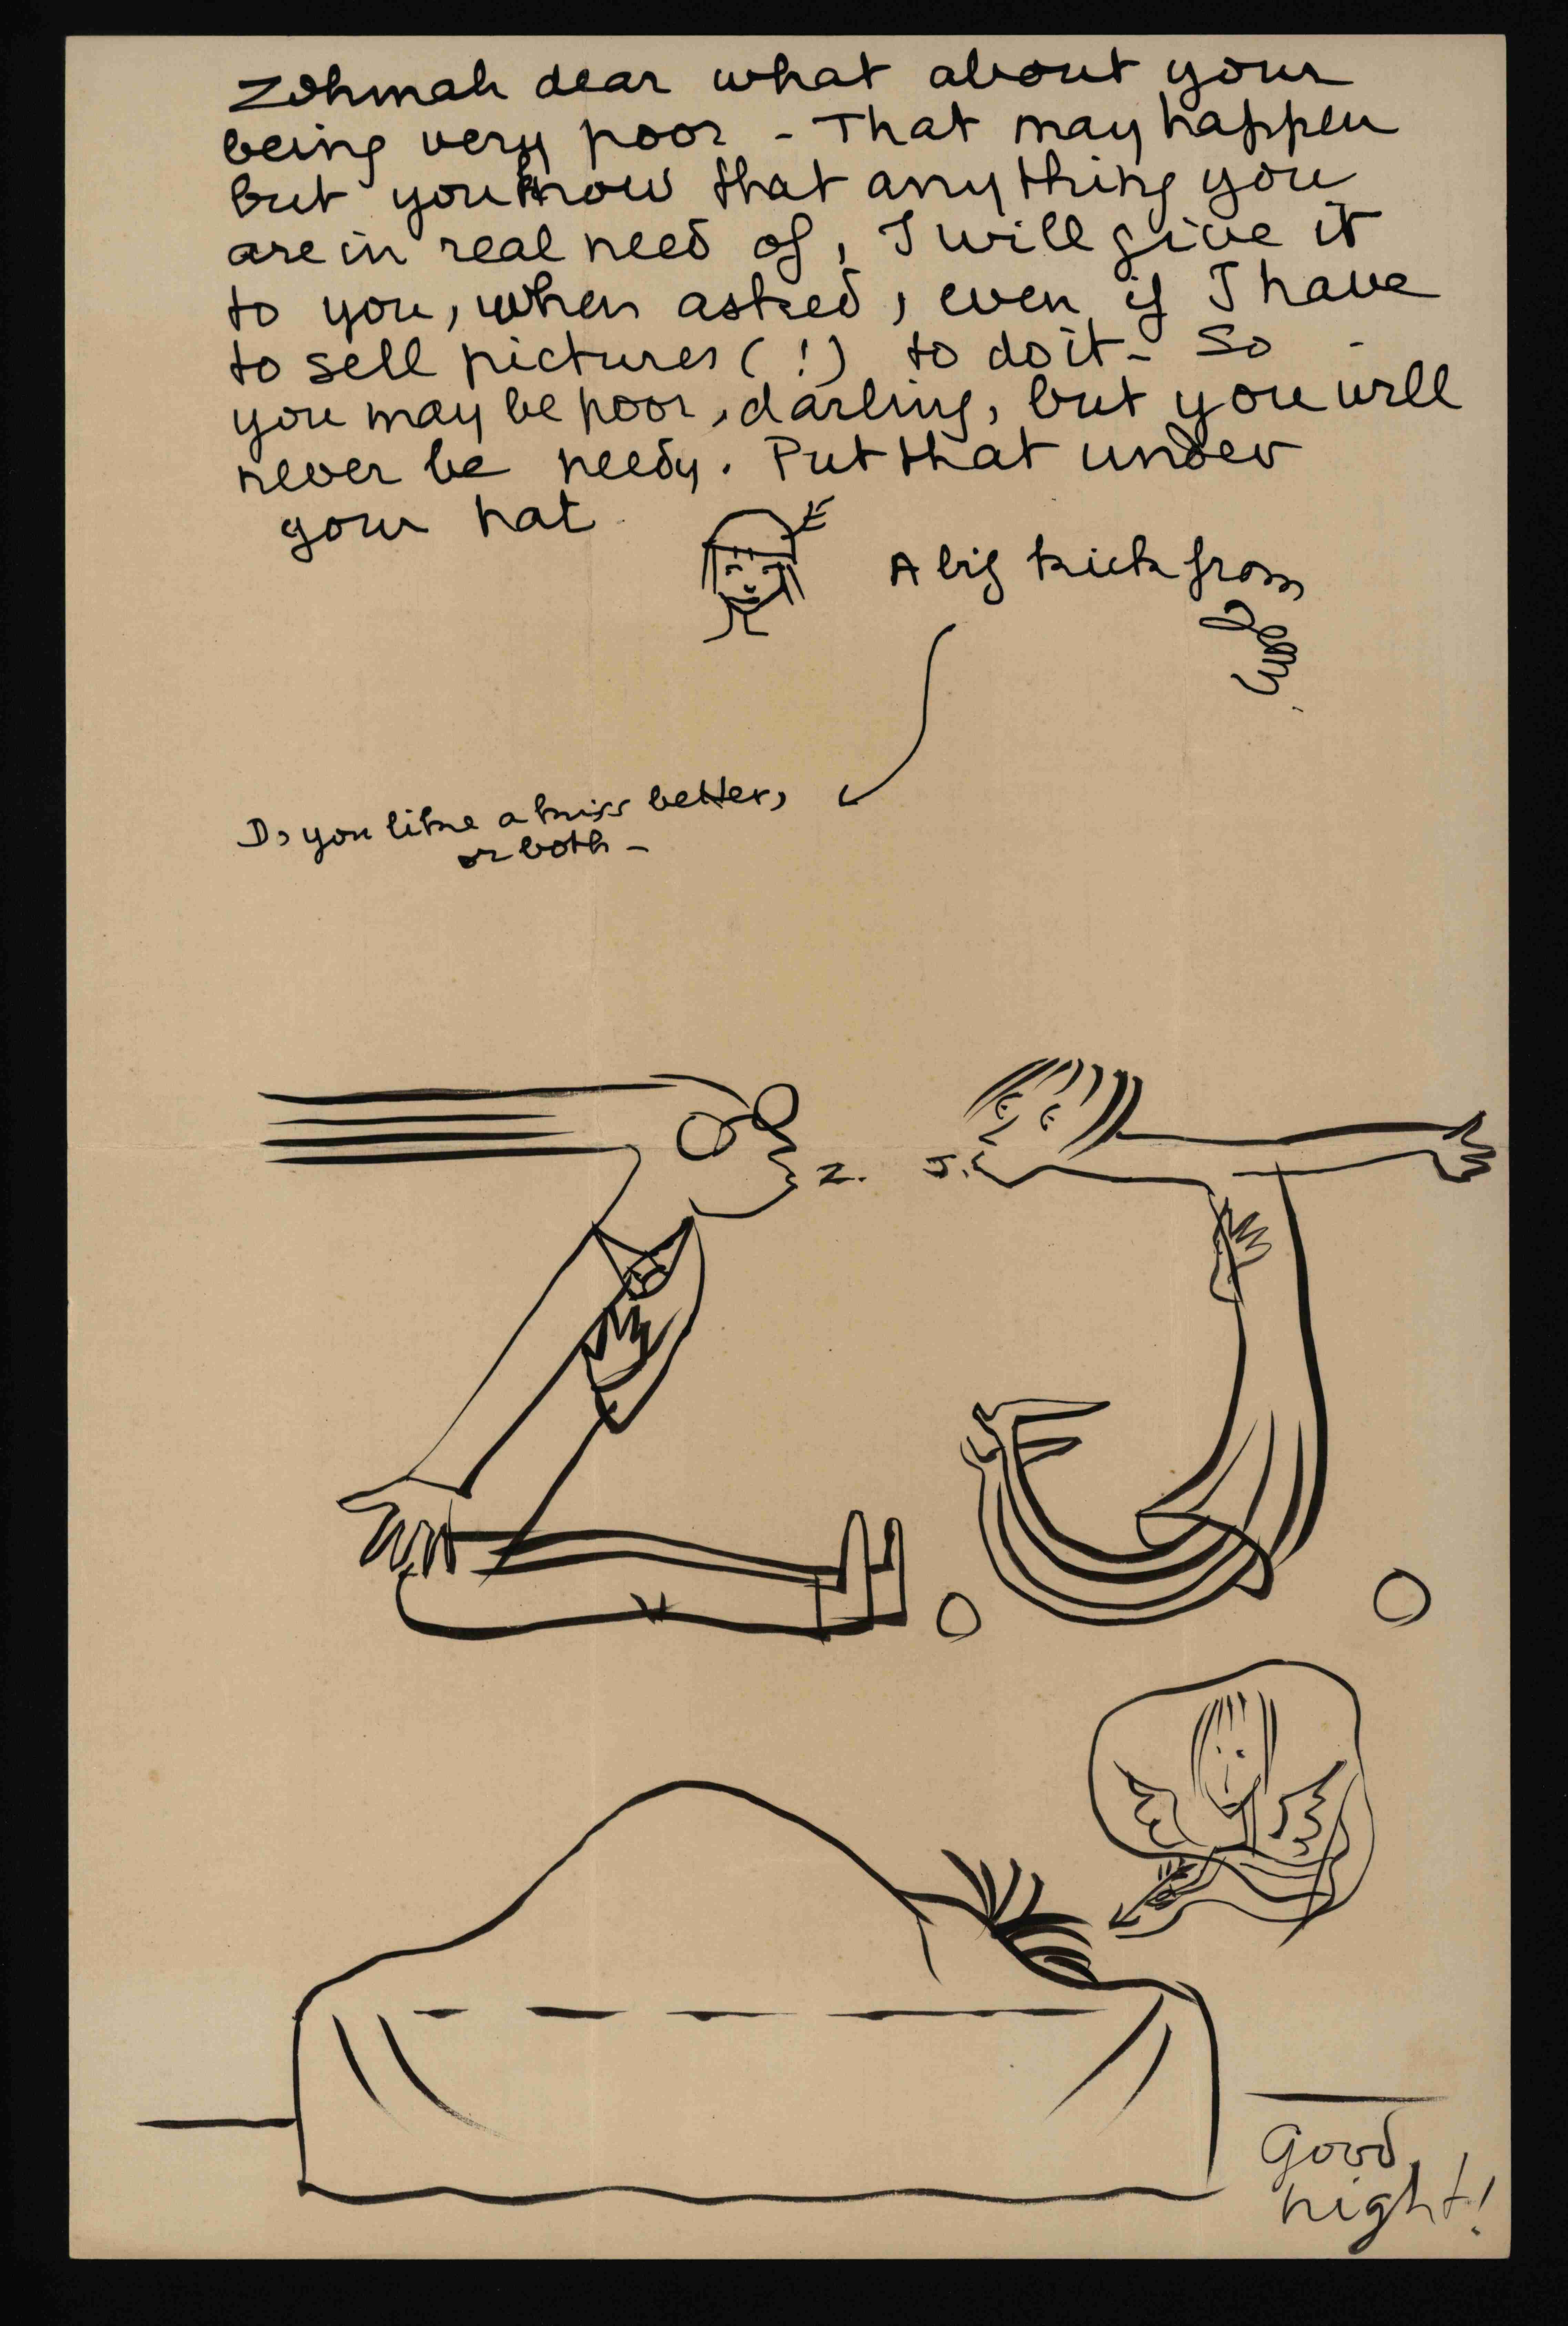 Zohmah dear what about your
being very poor - That may happen
but you know that anything you
are in real need of, I will give it
to you, when asked, even if I have
to sell pictures (!) to do it - So -
you may be poor, darling, but you will
never be needy. Put that under
your hat
A big kick from
Do you like a kiss better,
or both -
Z. J.
Good
night!